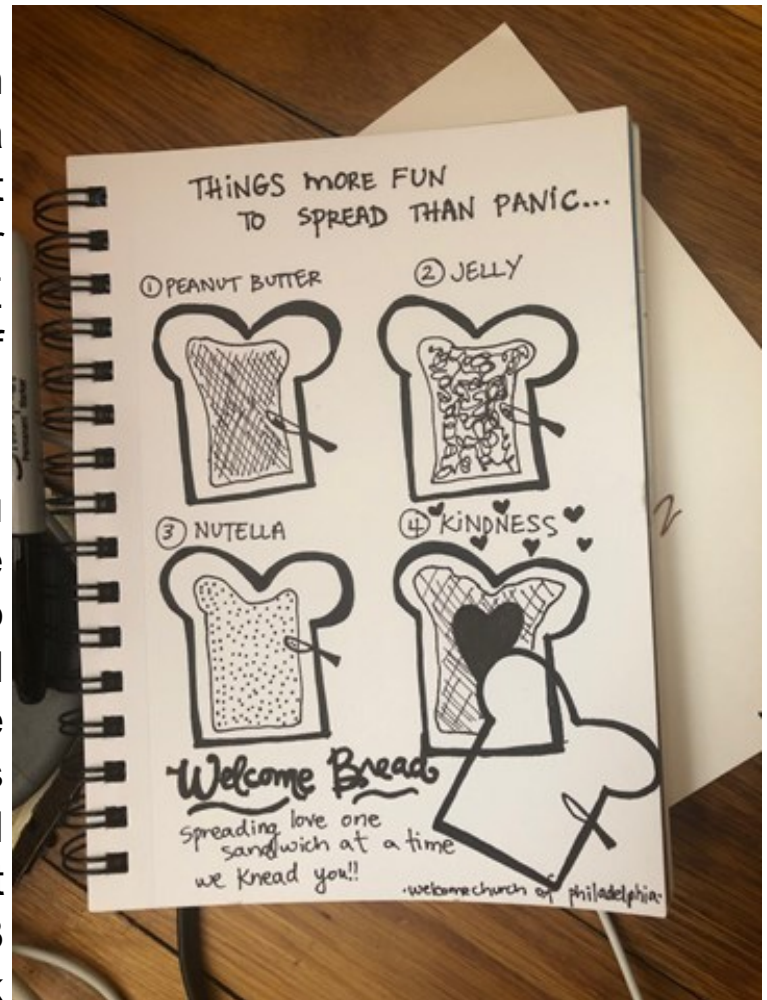 THiNGS MORE FUN
TO SPREAD THAN PANiC...
① PEANUT BUTTER
② JELLY
③ NUTELLA
④ KiNDNESS
Welcome Bread
spreading love one
sandwich at a time
we knead you!!
·welcome church of philadelphia·